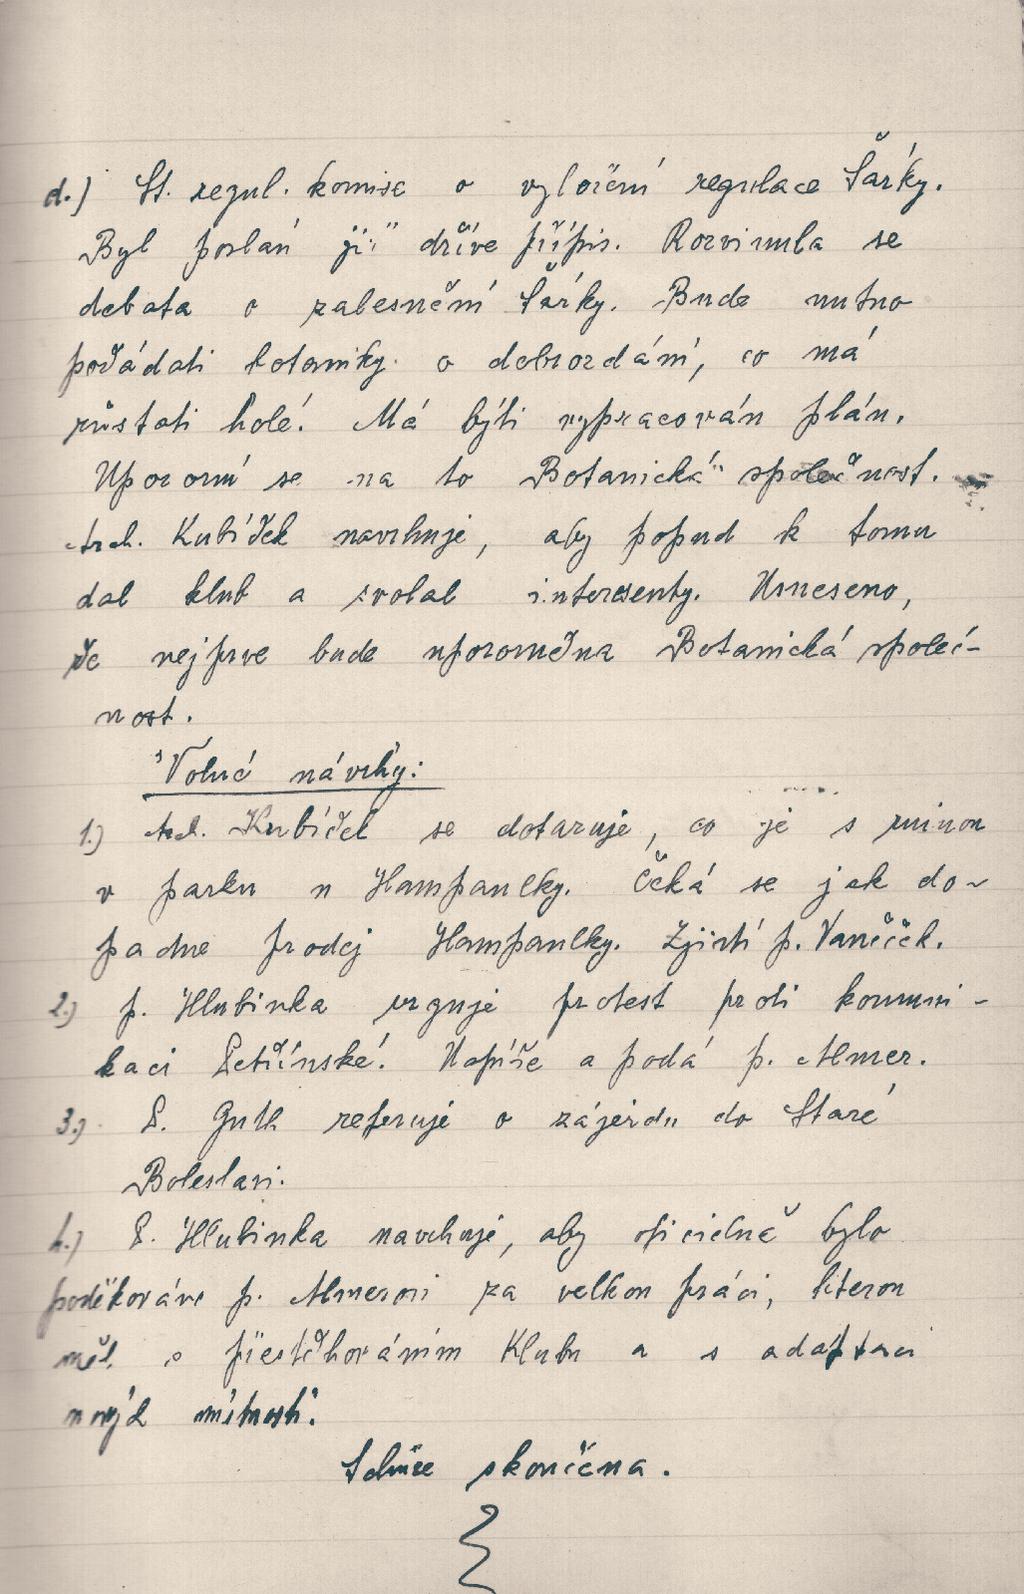 d.) St. regul. komise o vyloučení regulace Šárky.
Byl poslán již dříve přípis. Rozvinula se
debata o zalesnění Šárky. Bude nutno
požádati botaniky o dobrozdání, co má
zůstati holé. Má býti vypracován plán.
Upozorní se na to Botanická společnost.
Arch. Kubíček navrhuje, aby popud k tomu
dal klub a svolal interesenty. Usneseno,
že nejprve bude upozorněna Botanická společ-
nost.
Volné návrhy:
1.) Arch. Kubíček se dotazuje, co je s
v parku u Hampaulky. Čeká se jak do-
padne prodej Hampaulky. Zjistí p. Vaníček.
2.) p. Hlubinka urguje protest proti komuni-
kaci Petřínské. Napíše a podá p. Almer.
3.) P. Guth referuje o zájezdu do Staré
Boleslavi.
4.) P. Hlubinka navrhuje, aby oficielně bylo
poděkováno p. Almerovi za velkou práci, kterou
měl s přestěhováním Klubu a s adaptací
nových místností.
Schůze skončena.